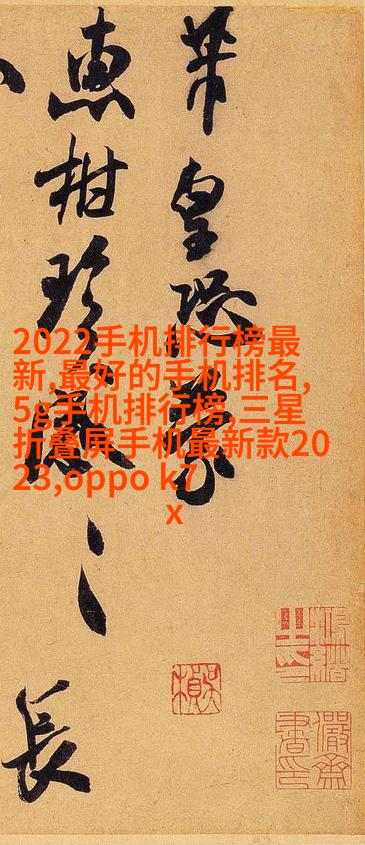 芾皇恐蒙
惠柑珍感〻長
2022手机排行榜最
新,最好的手机排名,
5g手机排行榜,三星
折叠屏手机最新款20
23,oppo k7
x